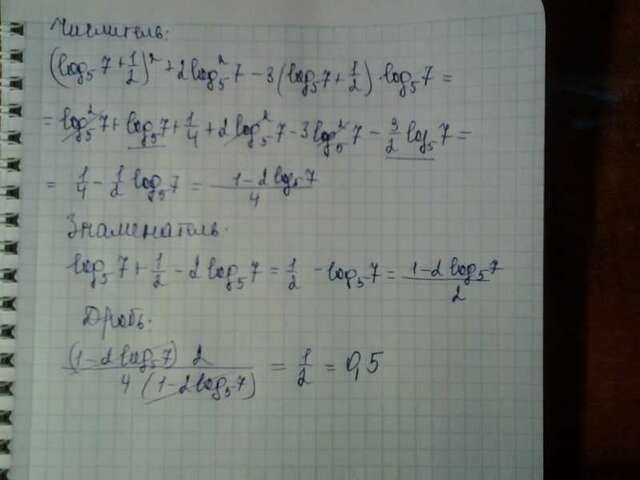 Числитель:
(log₅7 + 1/2)² + 2log₅²7 - 3(log₅7 + 1/2) · log₅7 =
= log₅²7 + log₅7 + 1/4 + 2log₅²7 - 3log₅²7 - 3/2 log₅7 =
= 1/4 - 1/2 log₅7 = (1-2log₅7)/4
Знаменатель.
log₅7 + 1/2 - 2log₅7 = 1/2 - log₅7 = (1-2log₅7)/2
Дробь.
(1-2log₅7) 2 / 4(1-2log₅7) = 1/2 = 0,5